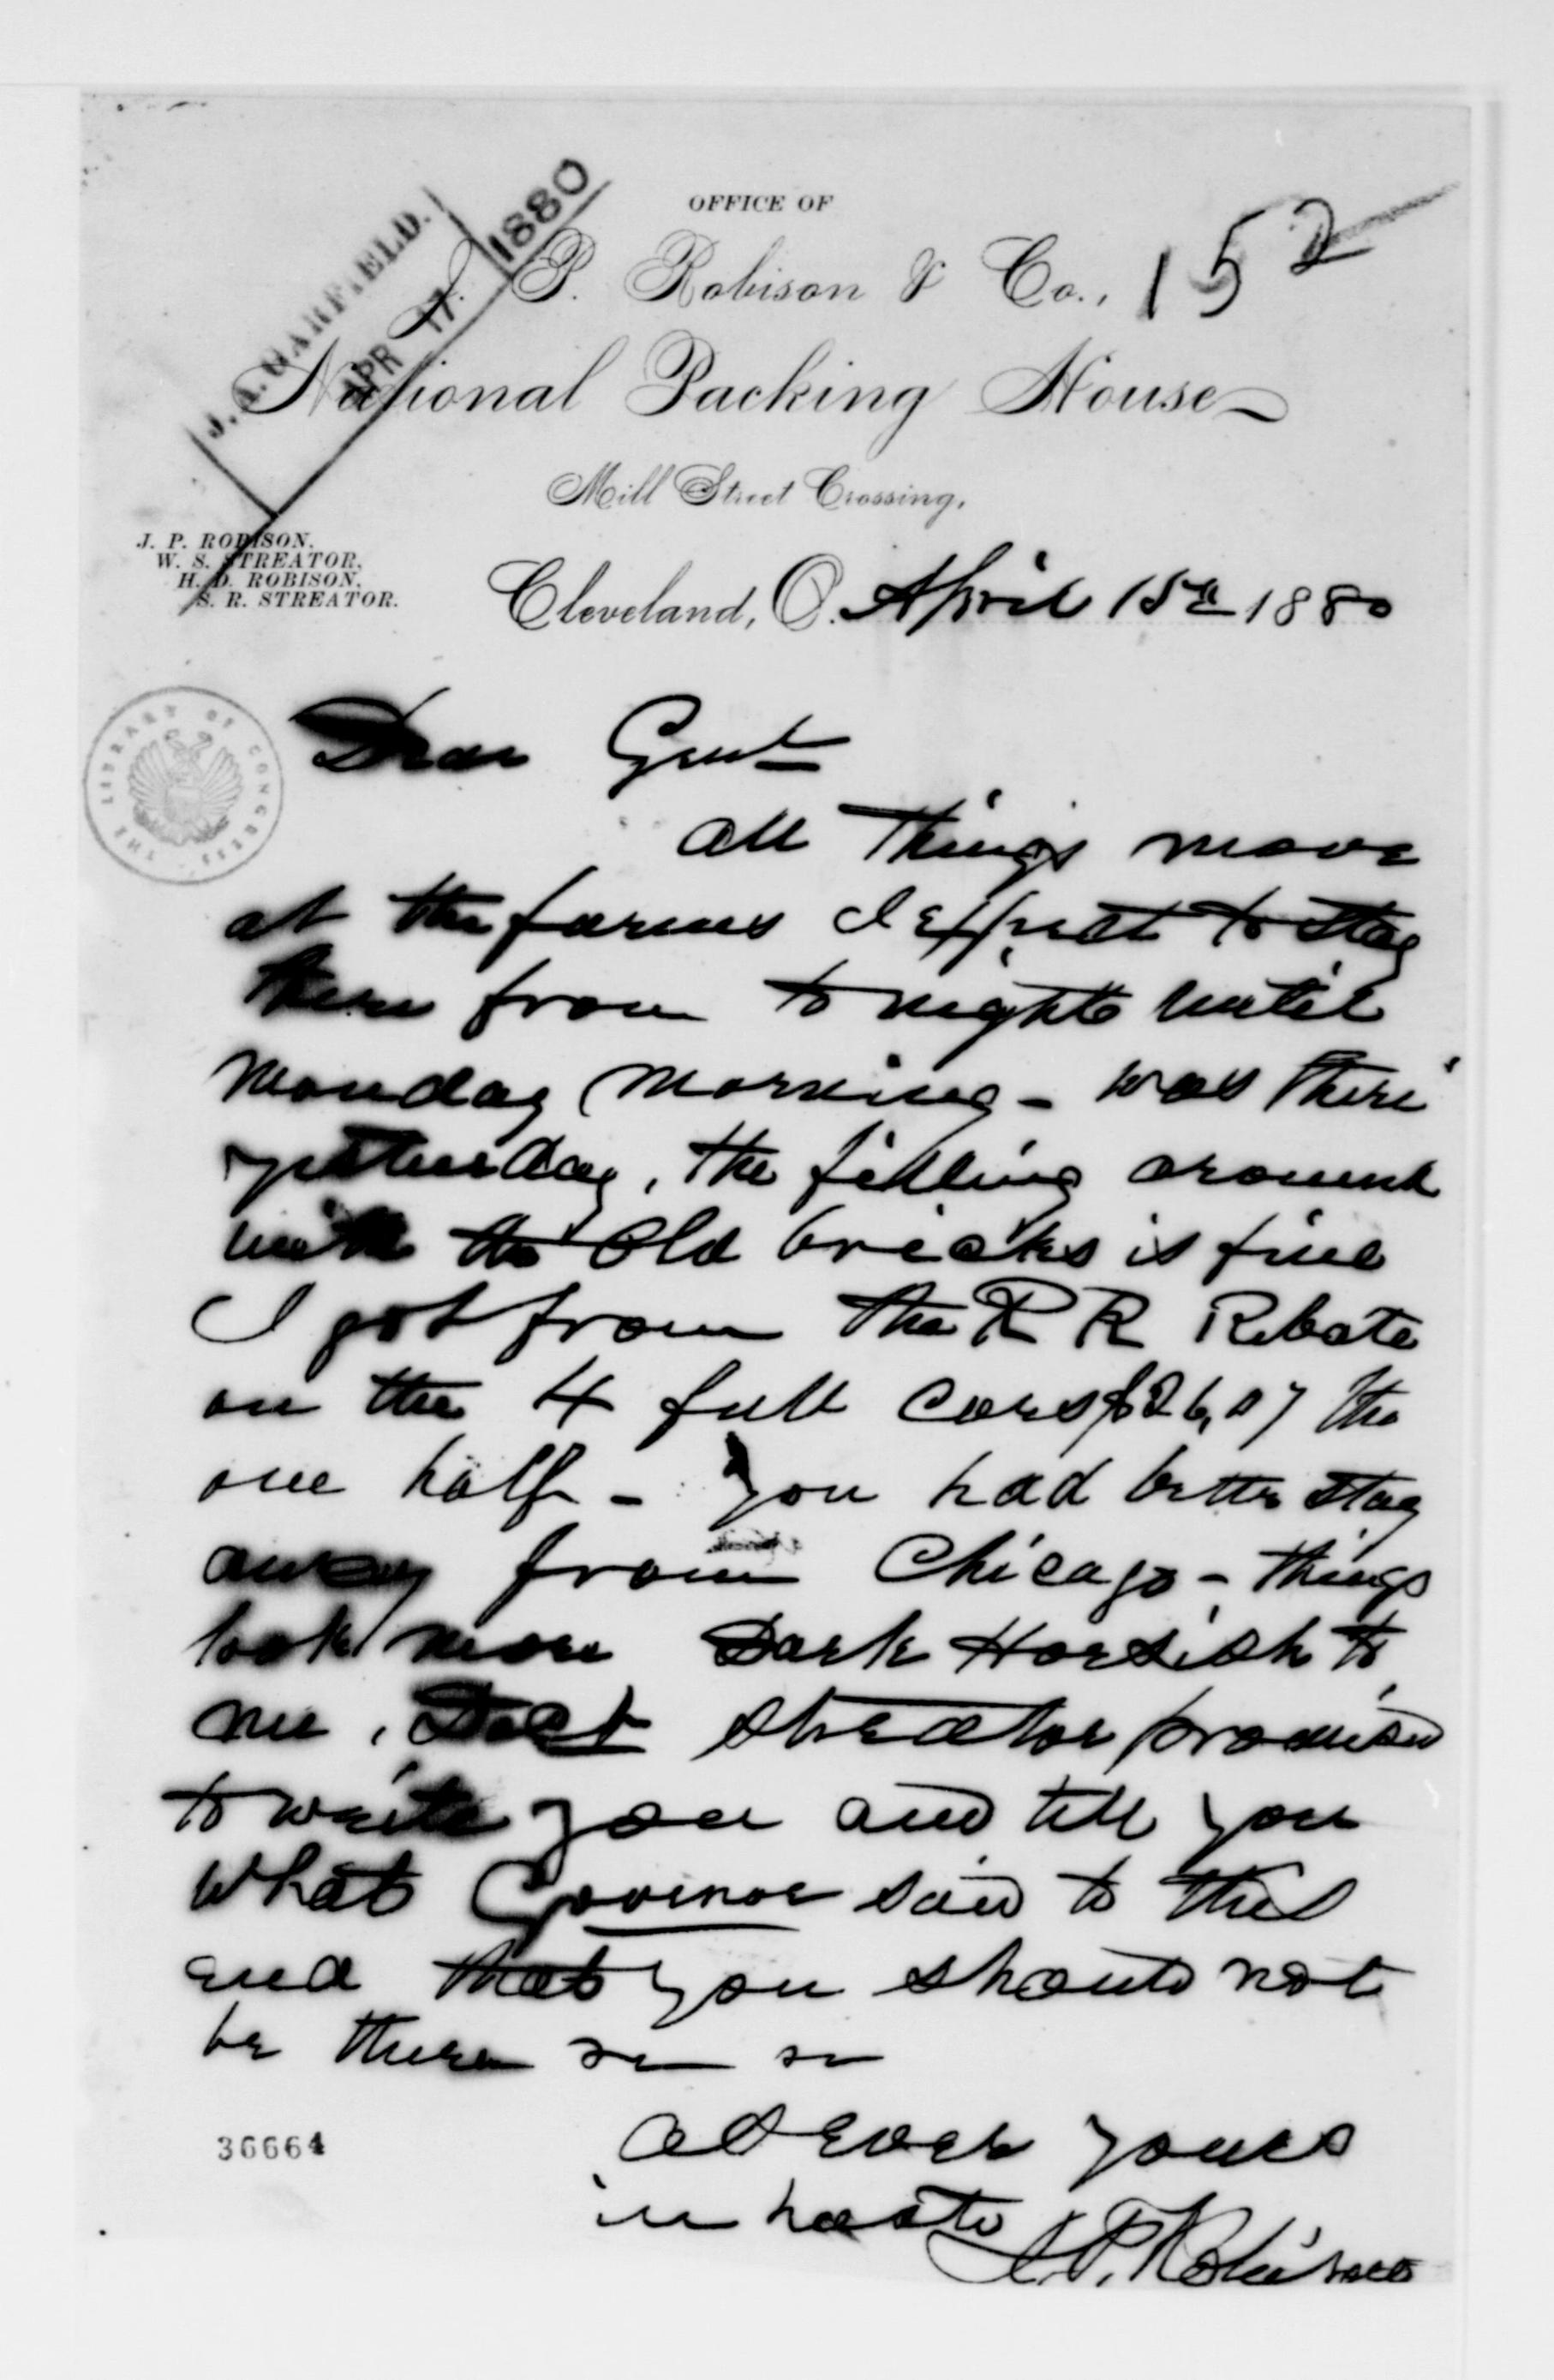 OFFICE OF
J. P. Robison & Co.,
152
J. A. GARFIELD.
APR 17 1880
National Packing House
Mill Street Crossing,
J. P. ROBISON.
W. S. STREATOR,
H. D. ROBISON,
S. R. STREATOR.
Cleveland, O. April 15th 1880
THE LIBRARY OF CONGRESS
Dear Genl
All things move
at the farms I expect to stay
there from to night until
Monday morning - was there
yesterday, the filling around
with the old bricks is fine
I got from the RR Rebate
on the 4 full cars $26,07 the
one half - you had better stay
away from Chicago - things
look more Dark Horsish to
me, Doct Streator promised
to write you and tell you
What Govenor said to this
end that you should not
be there
as ever yours
in haste
J. P. Robison
36664